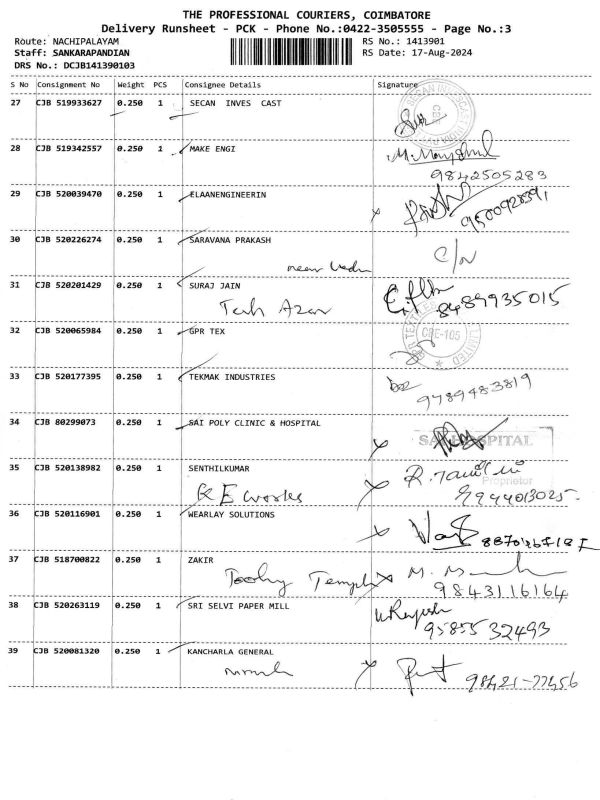 THE PROFESSIONAL COURIERS, COIMBATORE
Delivery Runsheet - PCK - Phone No.:0422-3505555 - Page No.:3
Route: NACHIPALAYAM RS No.: 1413901
Staff: SANKARAPANDIAN RS Date: 17-Aug-2024
DRS No.: DCJB141390103
S No Consignment No Weight PCS Consignee Details Signature
27 CJB 519933627 0.250 1 SECAN INVES CAST
28 CJB 519342557 0.250 1 MAKE ENGI
9842505283
29 CJB 520039470 0.250 1 ELAANENGINEERIN
30 CJB 520226274 0.250 1 SARAVANA PRAKASH
near C/N
31 CJB 520201429 0.250 1 SURAJ JAIN
8489935015
32 CJB 520065984 0.250 1 GPR TEX
CBE-105
LIMITED
33 CJB 520177395 0.250 1 TEKMAK INDUSTRIES
9789483819
34 CJB 80299073 0.250 1 SAI POLY CLINIC & HOSPITAL
HOSPITAL
35 CJB 520138982 0.250 1 SENTHILKUMAR
Proprietor
R E works 9944013025
36 CJB 520116901 0.250 1 WEARLAY SOLUTIONS
37 CJB 518700822 0.250 1 ZAKIR
9843116164
38 CJB 520263119 0.250 1 SRI SELVI PAPER MILL
95855 32493
39 CJB 520081320 0.250 1 KANCHARLA GENERAL
98421-77456